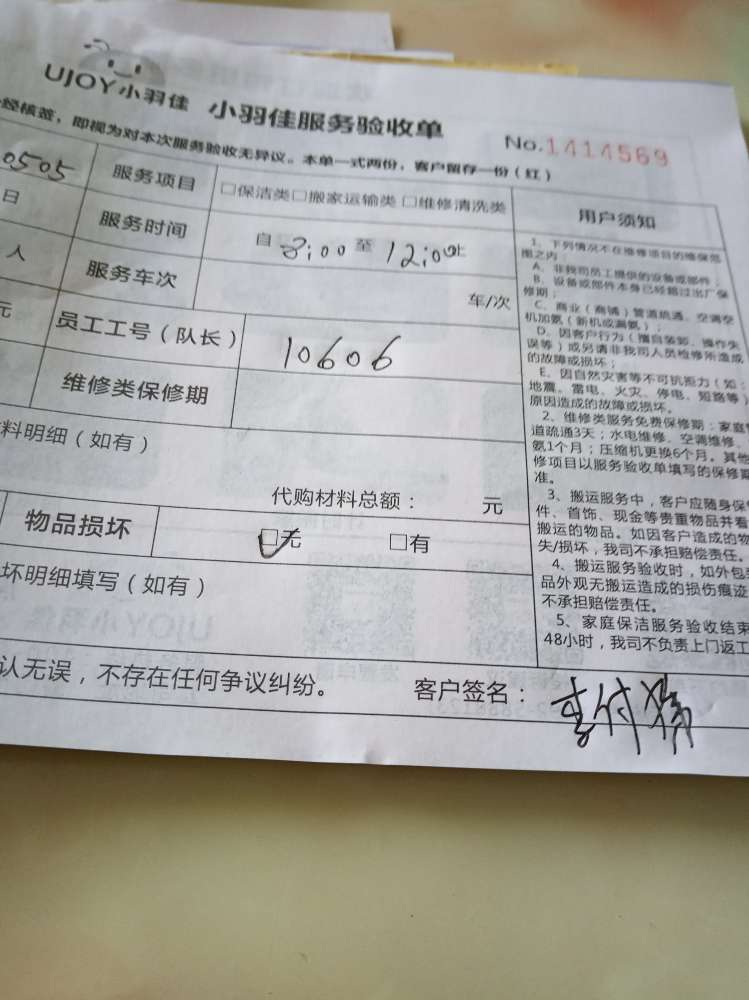 UJOY小羽佳 小羽佳服务验收单
No.1414569
经核签，即视为对本次服务验收无异议。本单一式两份，客户留存一份（红）
0505 服务项目 □保洁类□搬家运输类 □维修清洗类
日 服务时间 自 8:00 至 12:00止
人 服务车次 车/次
元 员工工号（队长） 10606
维修类保修期
料明细（如有）
代购材料总额： 元
物品损坏 □无 □有
坏明细填写（如有）
认无误，不存在任何争议纠纷。 客户签名：
用户须知
1、下列情况不在维修项目的维保范
围之内：
A、非我司员工提供的设备或部件；
B、设备或部件本身已经超过出厂保
修期；
C、商业（商铺）管道疏通、空调空
机加氨（新机或漏氨）；
D、因客户行为（擅自装卸、操作失
误等）或另请非我司人员检修所造成
的故障或损坏；
E、因自然灾害等不可抗拒力（如：
地震、雷电、火灾、停电、短路等）
原因造成的故障或损坏。
2、维修类服务免费保修期：家庭管
道疏通3天；水电维修、空调维修、
氨1个月；压缩机更换6个月。其他
修项目以服务验收单填写的保修期
准。
3、搬运服务中，客户应随身保
件、首饰、现金等贵重物品并看
搬运的物品。如因客户造成的物
失/损坏，我司不承担赔偿责任。
4、搬运服务验收时，如外包
品外观无搬运造成的损伤痕迹
不承担赔偿责任。
5、家庭保洁服务验收结束
48小时，我司不负责上门返工